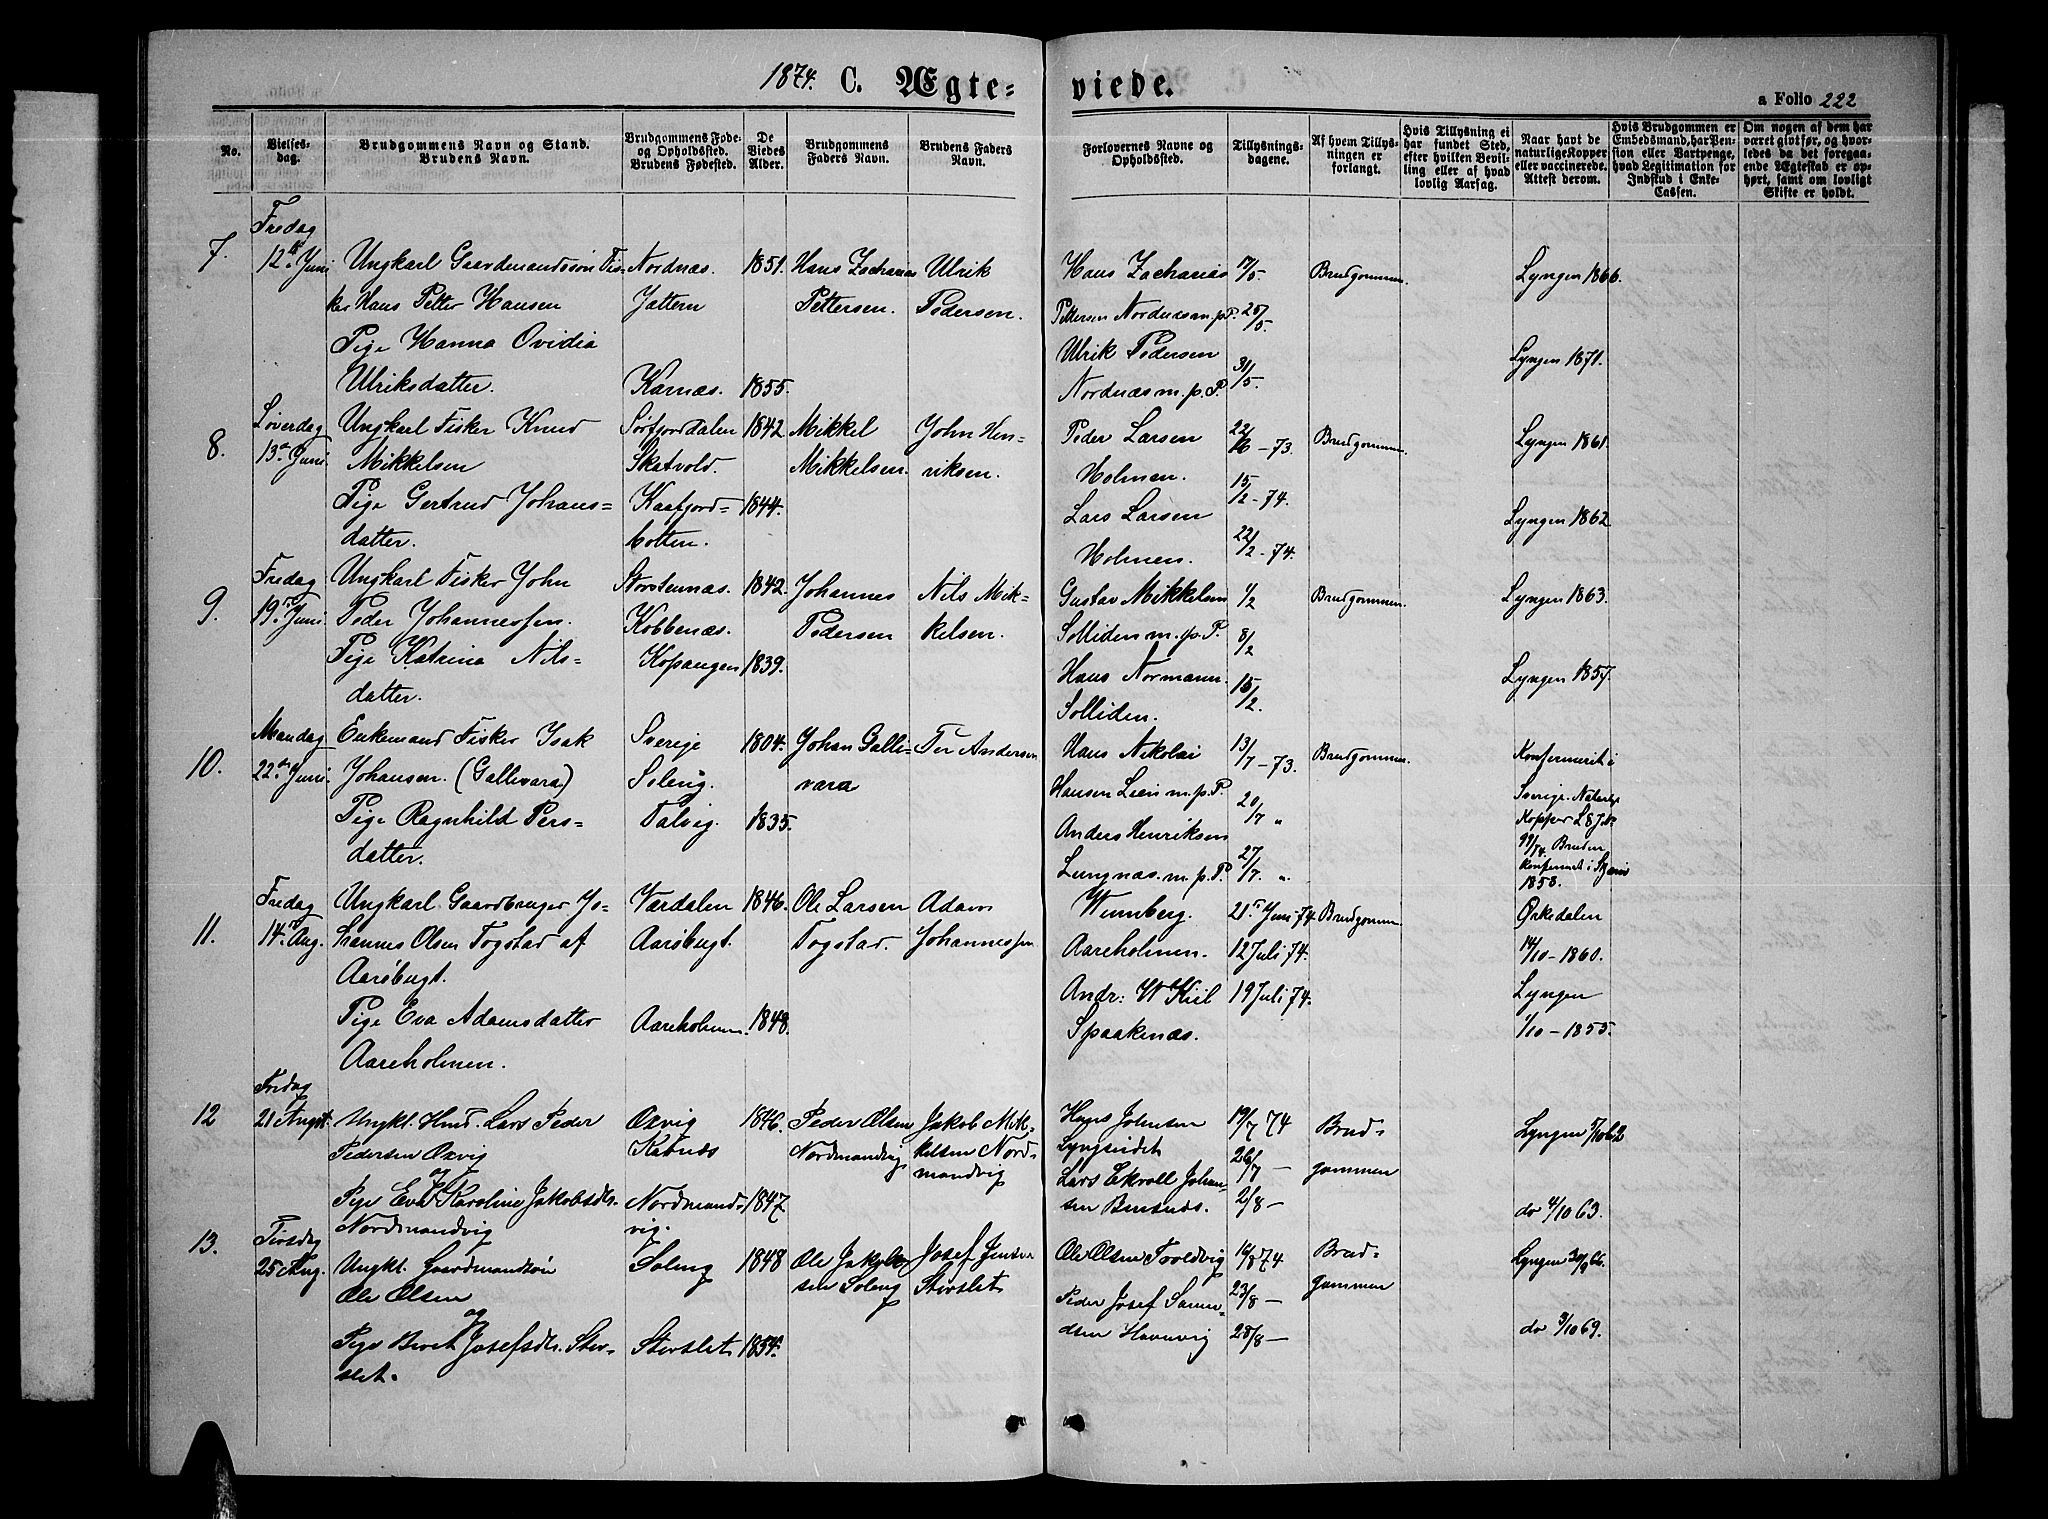 1874. C. Ægte= viede.
a Folio 222
No.
Vielses-
dag.
Brudgommens Navn og Stand.
Brudens Navn.
Brudgommens Føde-
og Opholdssted.
Brudens Fødested.
De
Viedes
Alder.
Brudgommens
Faders Navn.
Brudens Faders
Navn.
Forlovernes Navne og
Opholdssted.
Tillysnings-
dagene.
Af hvem Tillys-
ningen er
forlangt.
Hvis Tillysning ei
har fundet Sted,
efter hvilken Bevil-
ling eller af hvad
lovlig Aarsag.
Naar havt de
naturlige Kopper
eller vaccinerede.
Attest derom.
Hvis Brudgommen er
Embedsmand, har Pen-
sion eller Vartpenge,
hvad Legitimation for
Indskud i Enke-
Cassen.
Om nogen af dem har
været givt før, og hvor-
ledes da det foregaa-
ende Ægteskab er op-
hørt, samt om lovligt
Skifte er holdt.
7.
Fredag
12te Juni
Ungkarl Gaardmandssøn Fis-
ker Hans Petter Hansen
Pige Hanna Ovidia
Ulriksdatter.
Nordnæs.
Jattern
Karnæs.
1851.
1855.
Hans Zacharias
Pettersen.
Ulrik
Pedersen.
Hans Zacharias
Pettersen Nordnæs m.p.P.
Ulrik Pedersen
Nordnæs m.p.P.
17/5
25/5.
31/5.
Brudgommen.
Lyngen 1866.
Lyngen 1871.
8.
Løverdag
13de Juni
Ungkarl Fisker Knud
Mikkelsen
Pige Gertrud Johans=
datter.
Sørfjorddalen
Skatvold.
Kaafjord=
botten.
1842
1844.
Mikkel
Mikkelsen.
John Hen-
riksen.
Peder Larsen
Holmen.
Lars Larsen
Holmen.
22/16 - 73.
15/2 - 74.
22/2 - 74.
Brudgommen.
Lyngen 1861.
Lyngen 1862
9.
Fredag
19de Juni
Ungkarl Fisker John
Peder Johannessen.
Pige Katrina Nils=
datter.
Storstennæs.
Kobbenæs.
Kopangen
1842.
1839.
Johannes
Pedersen
Nils Mik=
kelsen.
Gustav Mikkelsen
Solliden m.p.P.
Hans Normann
Solliden.
1/2
8/2
15/2.
Brudgommen.
Lyngen 1863.
Lyngen 1857.
10.
Mandag
22de Juni
Enkemand Fisker Isak
Johansen. (Gallivara)
Pige Ragnhild Pers=
datter.
Sverige
Soleng.
Talvig.
1804.
1835.
Johan Galli-
vara
Per Andersen
Hans Nikolai
Hansen m.p.P.
Anders Henriksen
Lungnæs. m.p.P.
13/7 - 73.
20/7 "
27/7. "
Brudgommen.
Konfirmerit i
Sverige. Naturlige
Kopper
99/74. Bruden
1853.
11.
Fredag
14de Aug.
Ungkarl Gaardbruger Jo=
hannes Olsen Togstad af
Aarøbugt.
Pige Eva Adamsdatter
Aareholmen.
Værdalen
Aarøbugt.
Aareholmen.
1846.
1848.
Ole Larsen
Togstad.
Adam
Johannessen
Wennberg.
Aareholmen.
Andr: W Kiil
Spaakenæs.
21de Juni 74.
12 Juli 74.
19 Juli 74.
Brudgommen
Ørkedalen
14/10 - 1860.
Lyngen
1/10 - 1855.
12
Fredag
21 Augst.
Ungkl. Hmd. Lars Peder
Pedersen Oxvig
og
Pige Eva Karoline Jakobsdtr.
Nordmandvig
Oxvig
Kaanæs
Nordmand-
vig.
1846.
1847
Peder Olsen
Nordmandvig
Jakob Mik-
kelsen Nord-
mandvig
Hans Johnsen
Lyngseidet
Lars Ekroll Johan-
sen Bensnes.
19/7 74
26/7 -
2/8 -
Brud-
gommen
Lyngen 5/10 62
do 4/10 63.
13.
Tirsdag
25 Aug.
Ungkl. Gaardmandsøn
Ole Olsen
og
Pige Berit Josefsdtr. Stor-
slet.
Soleng
Storslet
1848
1854.
Ole Jakob-
sen Soleng
Josef Jensen
Storslet
Ole Olsen Troldvig
Peder Josef Samu-
elsen Havnvig
16/8 74
23/8 -
25/8 -
Brud-
gommen
Lyngen 30/9 66.
do 3/10 69.